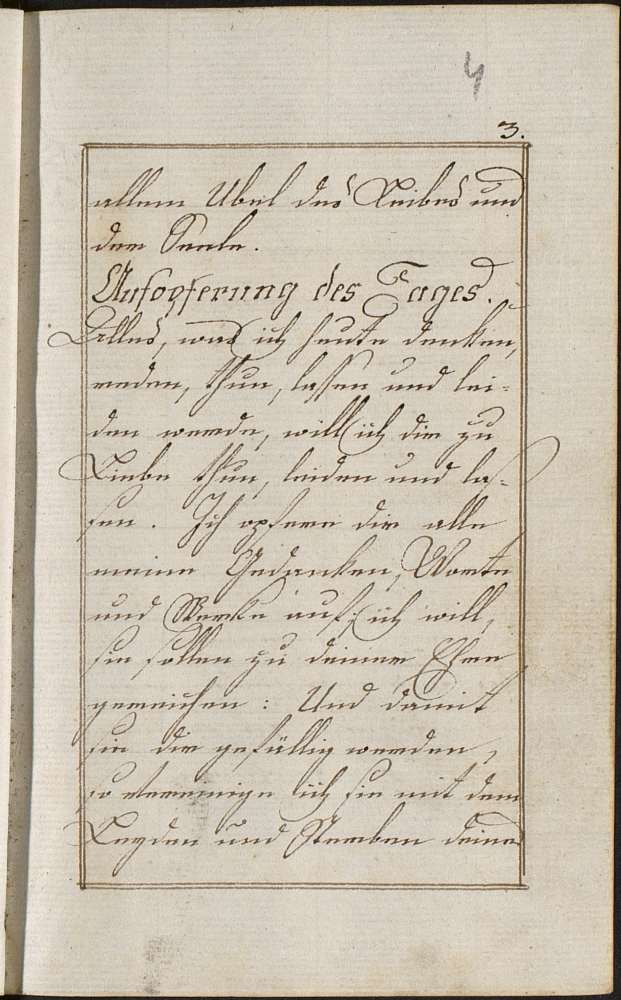 4
3.
allem Ubel des Leibes und
der Seele.
Aufopferung des Tages.
Alles, was ich heute denken,
reden, thun, lassen und lei-
den werde, will ich dir zu
Liebe thun, leiden und las-
sen. Ich opfere dir alle
meine Gedanken, Worte
und Werke auf; ich will,
sie sollen zu deiner Ehre
gereichen: Und damit
sie dir gefällig werden,
so vereinige ich sie mit dem
Leyden und Sterben deines